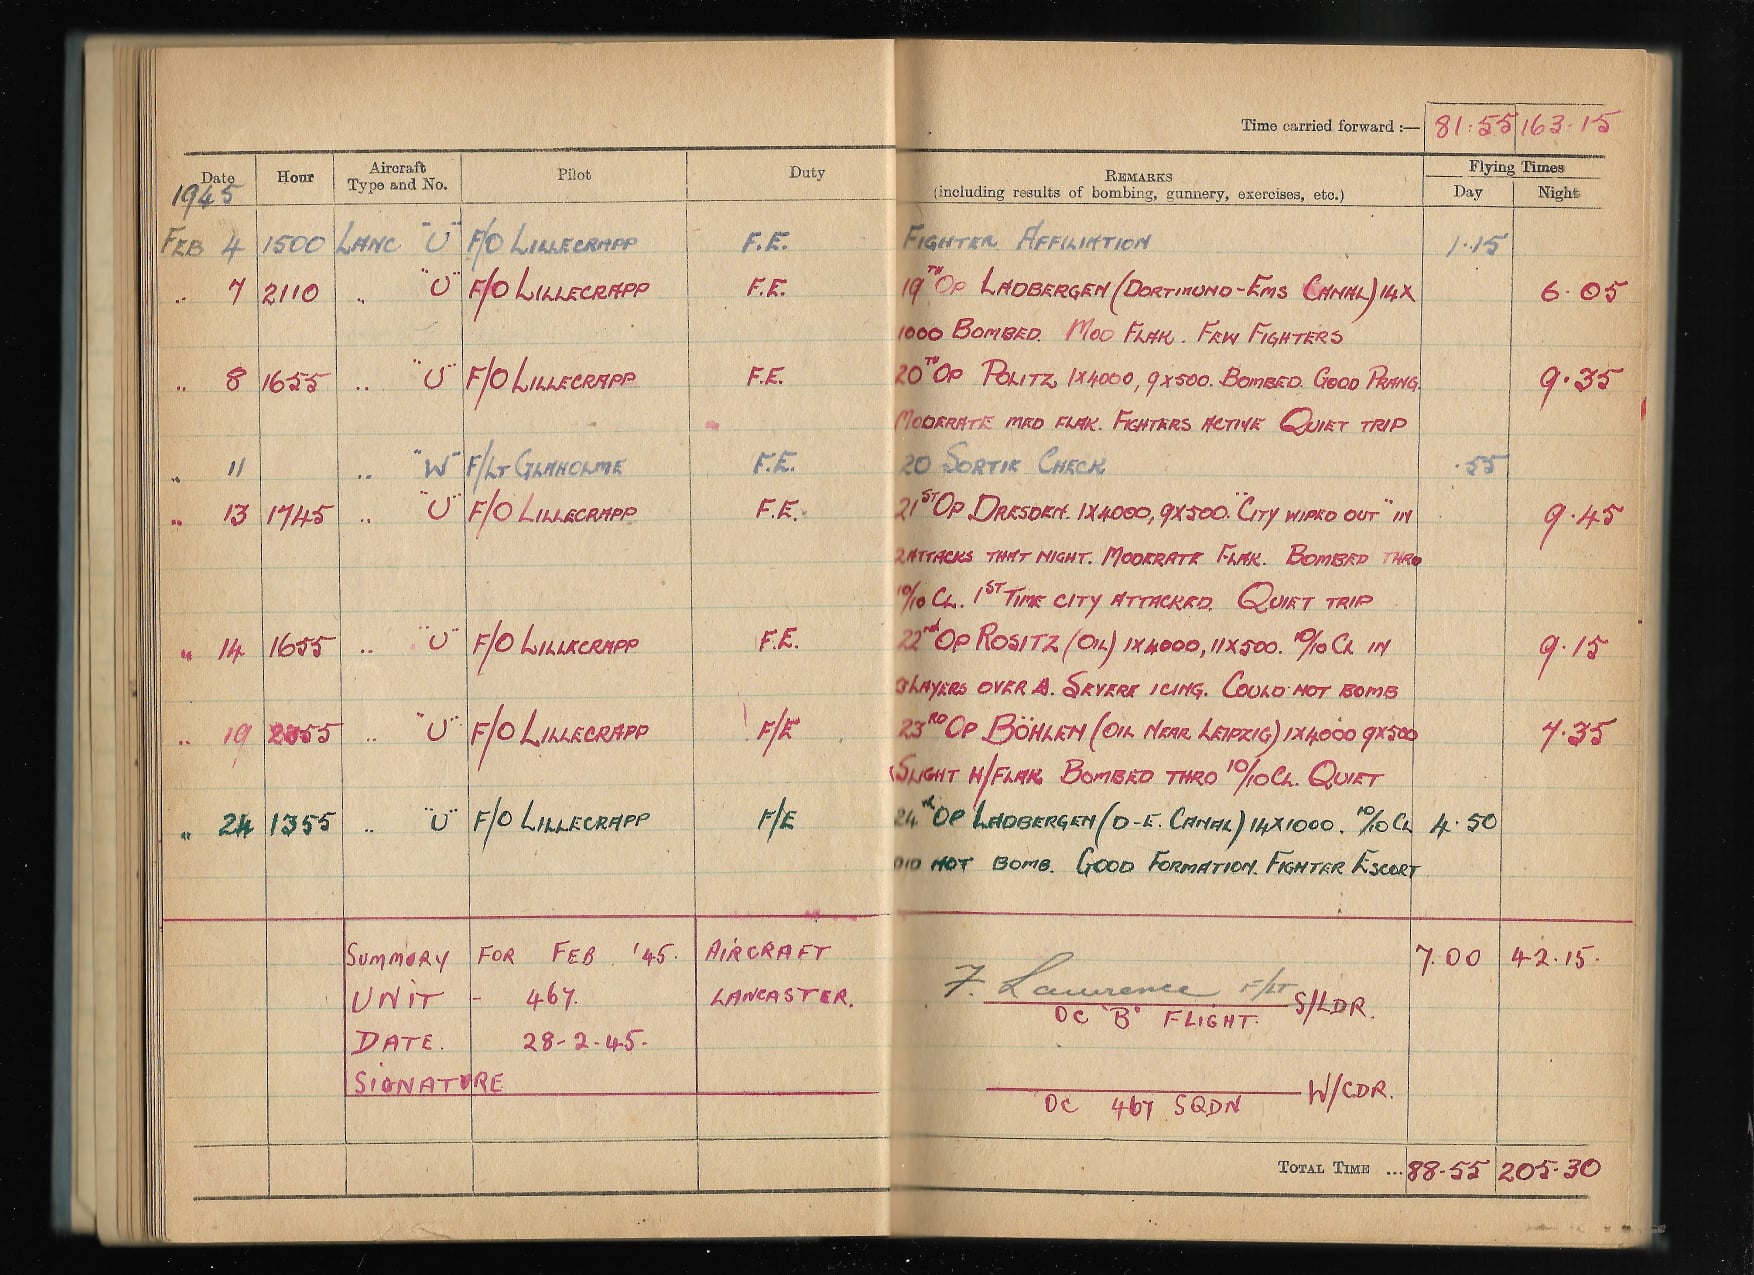 Time carried forward :— 81:55 163·15
Date Hour Aircraft Type and No. Pilot Duty REMARKS (including results of bombing, gunnery, exercises, etc.) Flying Times Day Night
1945
FEB 4 1500 LANC "U" F/O LILLECRAPP F.E. FIGHTER AFFILIATION 1·15
" 7 2110 " "U" F/O LILLECRAPP F.E. 19TH OP LADBERGEN (DORTMUND-EMS CANAL) 14X 6·05
1000 BOMBED. MOD FLAK. FEW FIGHTERS
" 8 1655 " "U" F/O LILLECRAPP F.E. 20TH OP POLITZ 1X4000, 9X500. BOMBED. GOOD PRANG. 9·35
MODERATE MED FLAK. FIGHTERS ACTIVE QUIET TRIP
" 11 " "W" F/LT GLAHOLME F.E. 20 SORTIE CHECK ·55
" 13 1745 " "U" F/O LILLECRAPP F.E. 21ST OP DRESDEN. 1X4000, 9X500. "CITY WIPED OUT" IN 9·45
2 ATTACKS THAT NIGHT. MODERATE FLAK. BOMBED THRO
10/10 CL. 1ST TIME CITY ATTACKED. QUIET TRIP
" 14 1655 " "U" F/O LILLECRAPP F.E. 22nd OP ROSITZ (OIL) 1X4000, 11X500. 10/10 CL IN 9·15
3 LAYERS OVER A. SEVERE ICING. COULD NOT BOMB
" 19 2355 " "U" F/O LILLECRAPP F/E 23RD OP BÖHLEN (OIL NEAR LEIPZIG) 1X4000 9X500 7·35
SLIGHT H/FLAK BOMBED THRO 10/10 CL. QUIET
" 24 1355 " "U" F/O LILLECRAPP F/E 24th OP LADBERGEN (D-E. CANAL) 14X1000. 10/10 CL 4·50
DID NOT BOMB. GOOD FORMATION. FIGHTER ESCORT
SUMMARY FOR FEB '45. AIRCRAFT 7.00 42·15·
UNIT - 467. LANCASTER.
F. Lawrence F/LT S/LDR.
OC "B" FLIGHT.
DATE. 28-2-45.
SIGNATURE
W/CDR.
OC 467 SQDN
TOTAL TIME ... 88-55 205·30